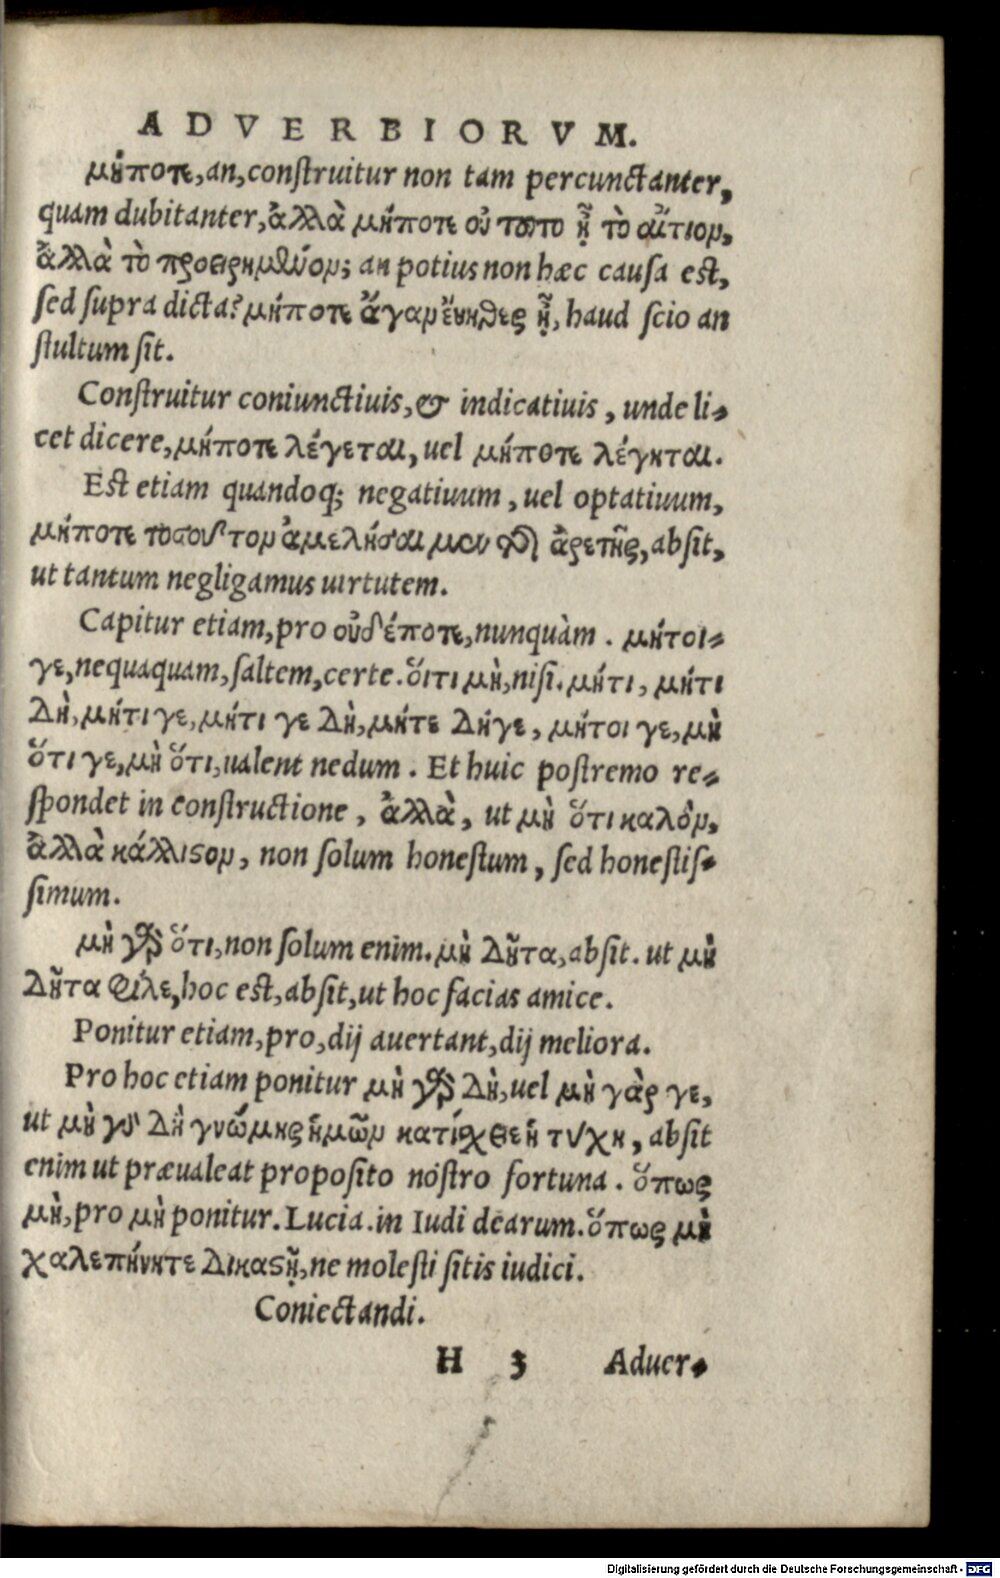 ADVERBIORVM.
μήποτε, an, construitur non tam percunctanter,
quam dubitanter, ἀλλὰ μήποτε οὐ τοῦτο ᾖ τὸ αἴτιον,
ἀλλὰ τὸ προειρημένον; an potius non hæc causa est,
sed supra dicta? μήποτε ἄγαν εὔηθες ᾖ, haud scio an
stultum sit.
Construitur coniunctiuis, & indicatiuis, unde li-
cet dicere, μήποτε λέγεται, uel μήποτε λέγηται.
Est etiam quandoq; negatiuum, uel optatiuum,
μήποτε τοσοῦτον ἀμελήσαιμεν τῆς ἀρετῆς, absit,
ut tantum negligamus uirtutem.
Capitur etiam, pro οὐδέποτε, nunquàm. μήτοι-
γε, nequaquam, saltem, certe. ὅιτι μὴ, nisi. μήτι, μήτι
δὴ, μήτι γε, μήτι γε δὴ, μήτε δήγε, μήτοι γε, μὴ
ὅτι γε, μὴ ὅτι, ualent nedum. Et huic postremo re-
spondet in constructione, ἀλλὰ, ut μὴ ὅτι καλὸν,
ἀλλὰ κάλλιστον, non solum honestum, sed honestis-
simum.
μὴ γὰρ ὅτι, non solum enim. μὴ δῆτα, absit. ut μὴ
δῆτα φίλε, hoc est, absit, ut hoc facias amice.
Ponitur etiam, pro, dij auertant, dij meliora.
Pro hoc etiam ponitur μὴ γὰρ δὴ, uel μὴ γάρ γε,
ut μὴ γὰρ δὴ γνώμης ἡμῶν κατίσχθεἡ τύχη, absit
enim ut præualeat proposito nostro fortuna. ὅπως
μὴ, pro μὴ ponitur. Lucia. in Iudi dearum. ὅπως μὴ
χαλεπήνητε δικαστῇ, ne molesti sitis iudici.
Coniectandi.
H 3 Aduer-
Digitalisierung gefördert durch die Deutsche Forschungsgemeinschaft - DFG